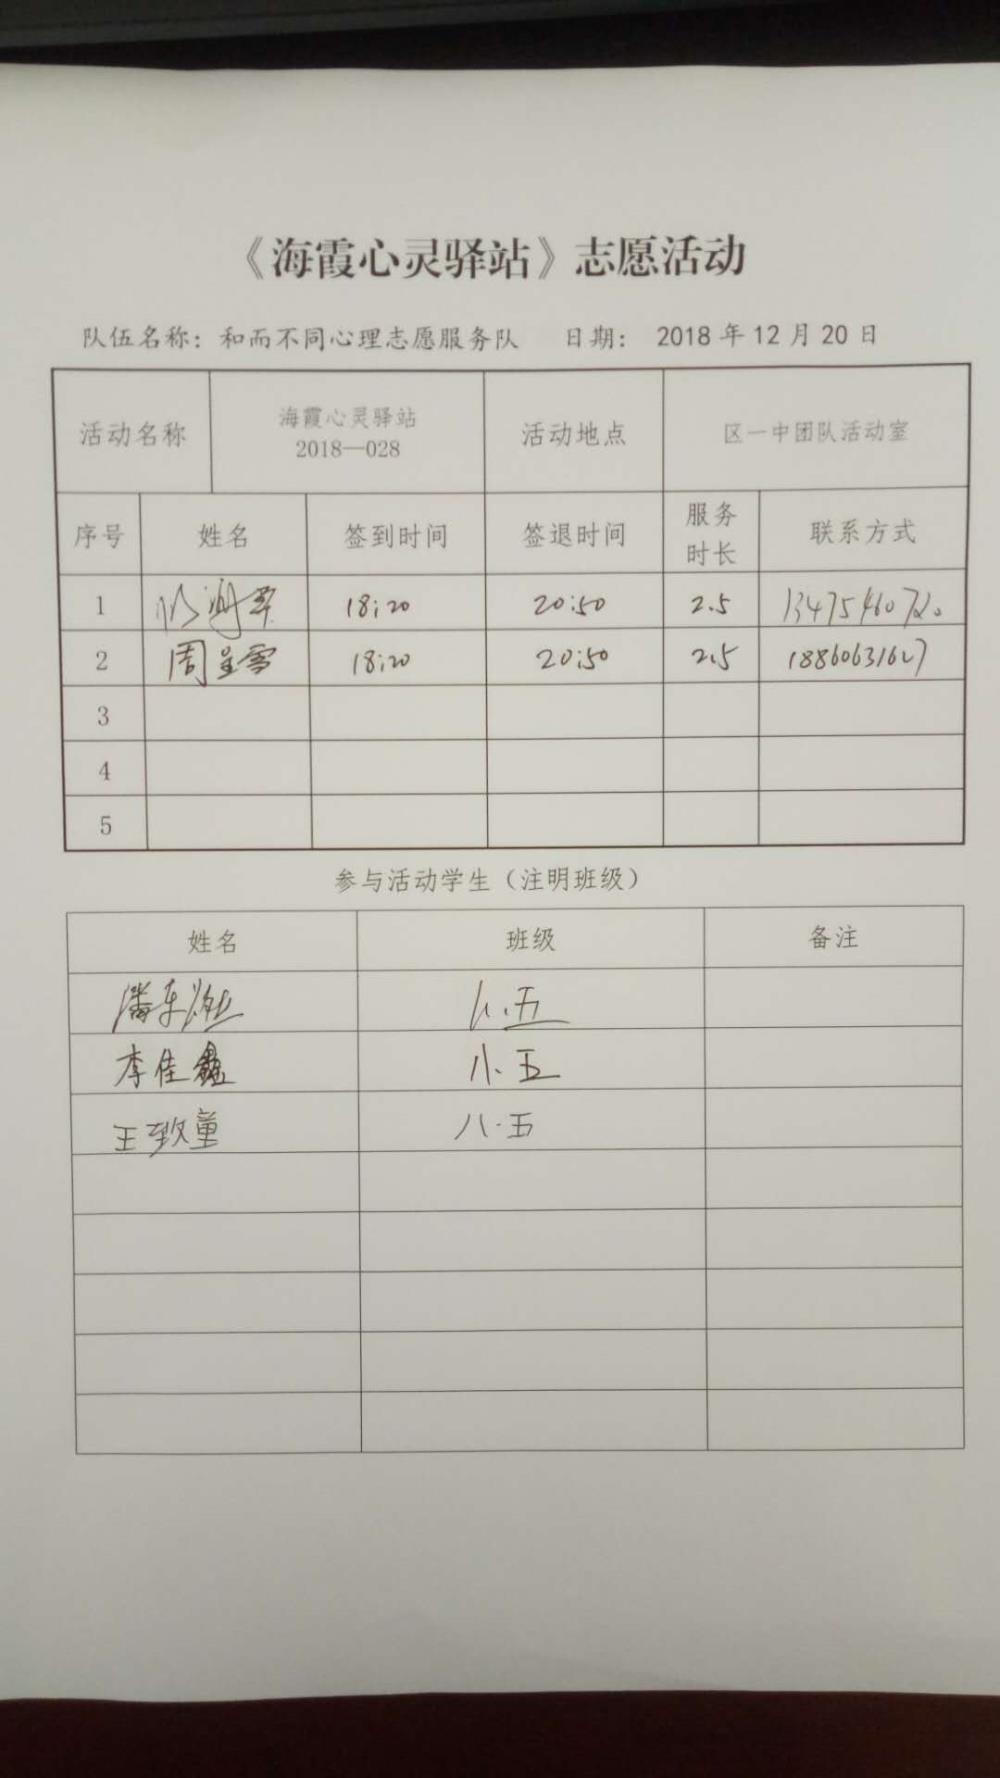 《海霞心灵驿站》志愿活动
队伍名称：和而不同心理志愿服务队 日期： 2018 年 12 月 20 日
活动名称 海霞心灵驿站 2018—028 活动地点 区一中团队活动室
序号 姓名 签到时间 签退时间 服务时长 联系方式
1 18:20 20:50 2.5
2 周呈雪 18:20 20:50 2.5
3
4
5
参与活动学生（注明班级）
姓名 班级 备注
潘东 八.五
李佳鑫 八.五
王致童 八.五